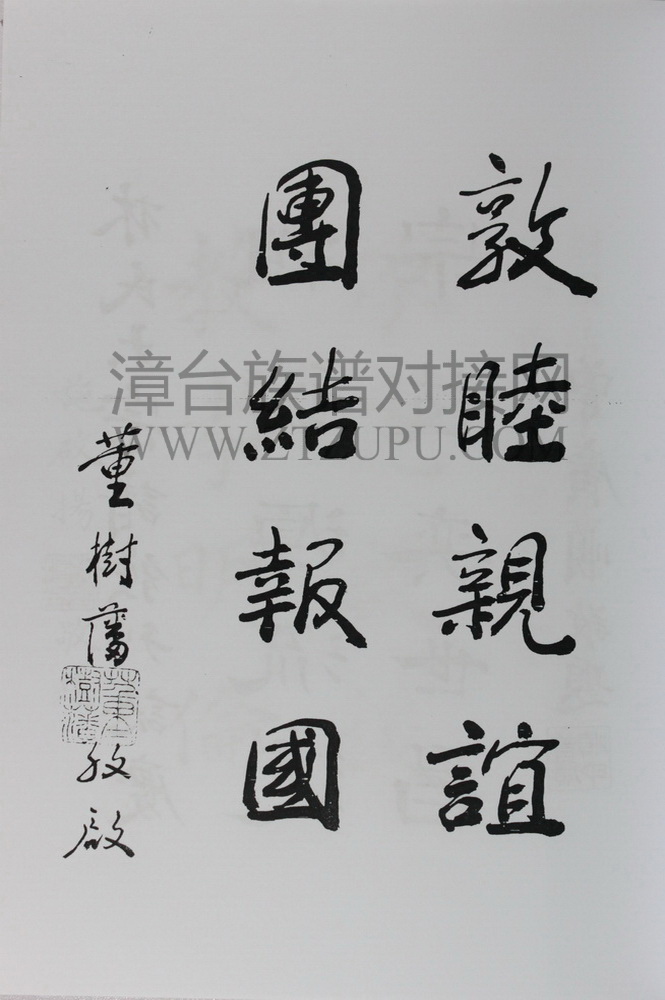 敦睦親誼
團結報國
董樹藩
敬啟
董樹藩
漳台族谱对接网
WWW.ZTZUPU.COM